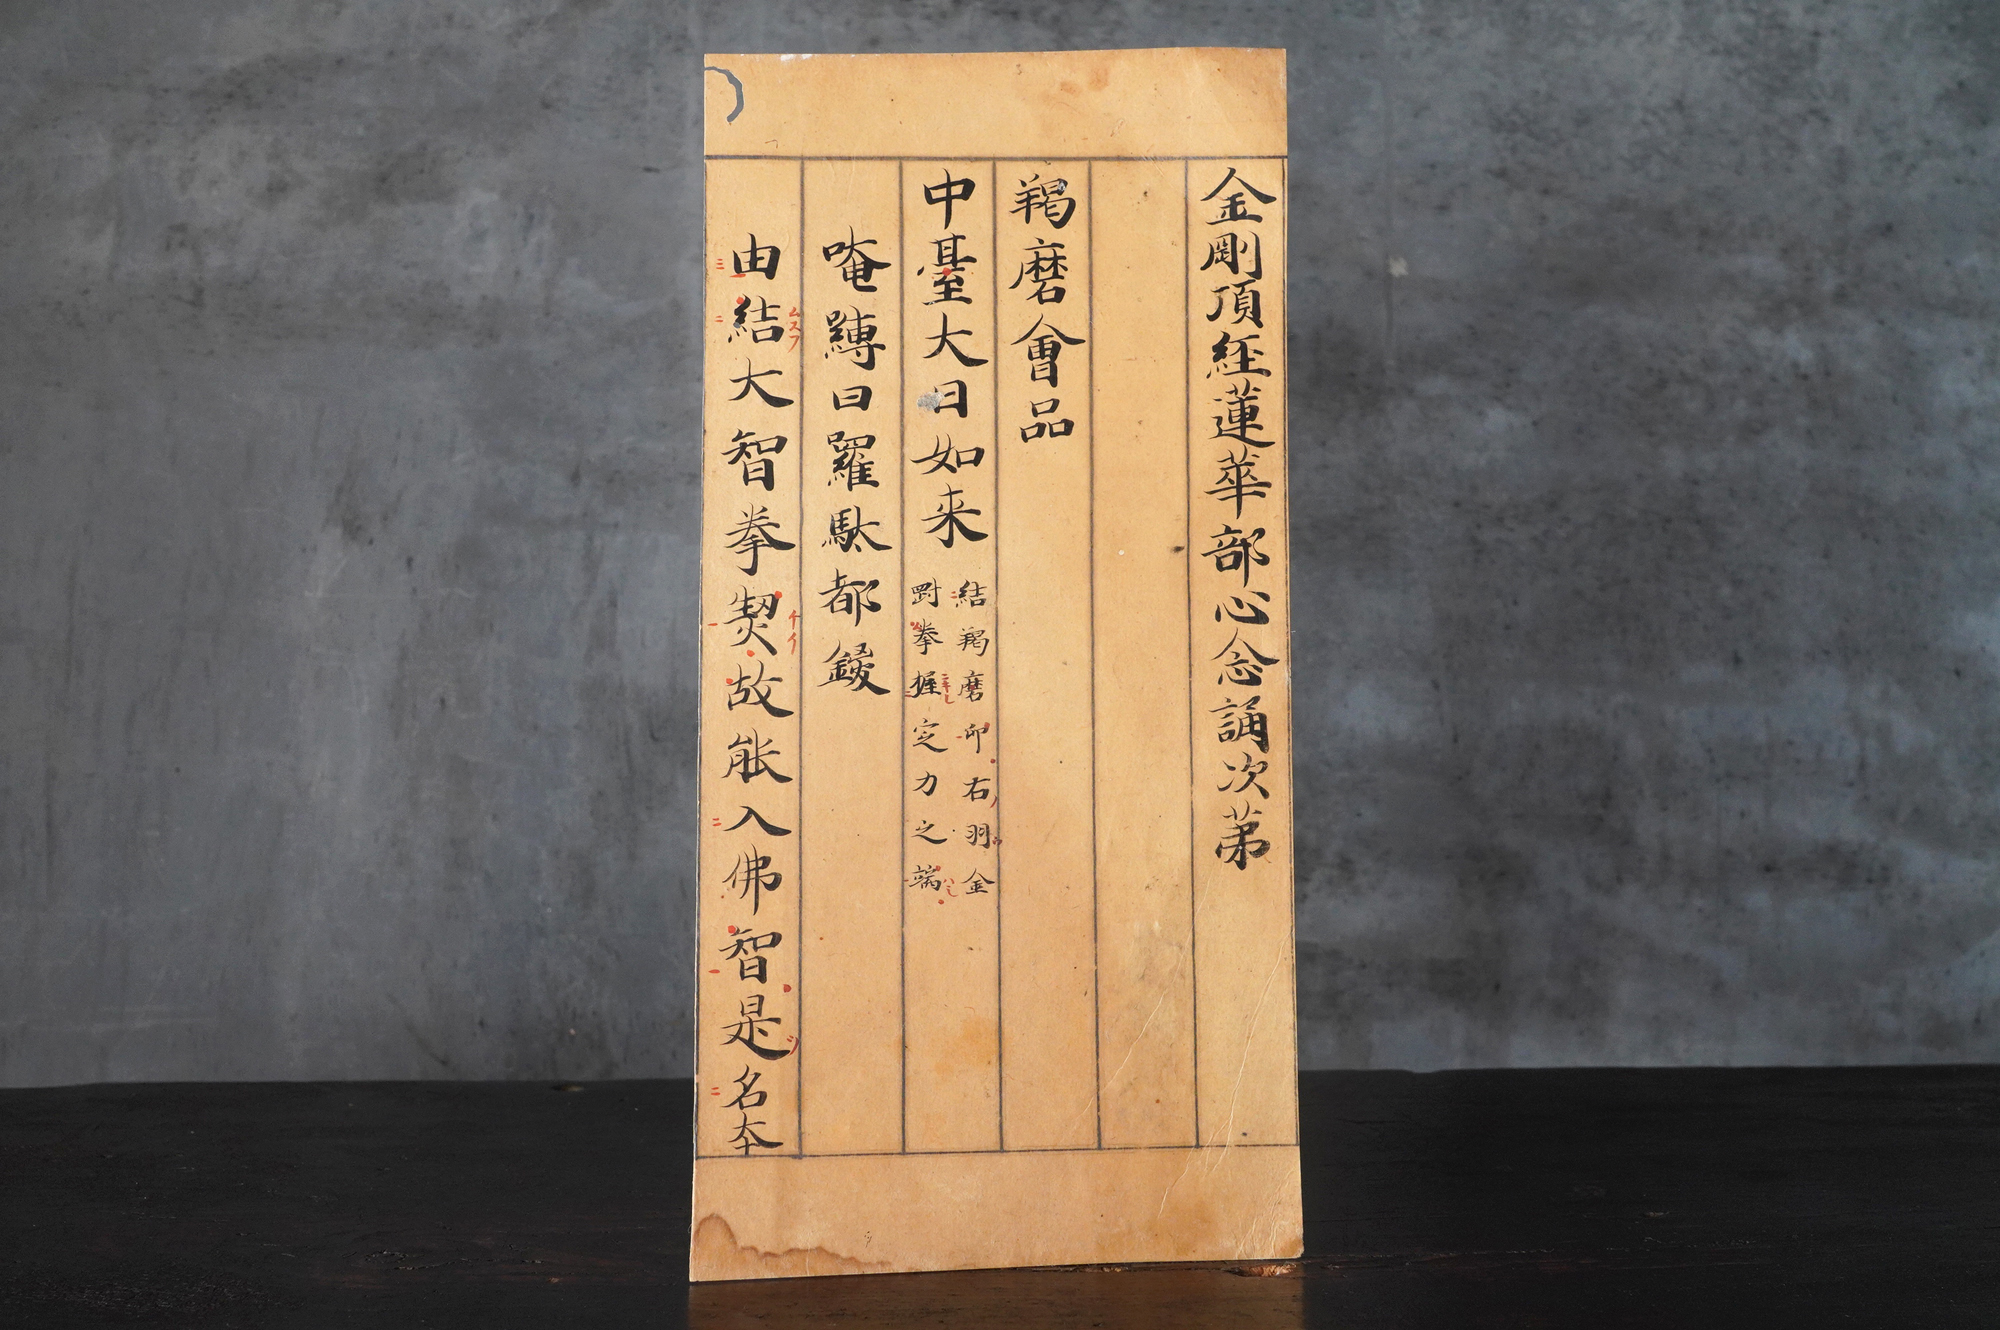 金剛頂経蓮華部心念誦次苐
羯磨會品
中臺大日如来
結羯磨印右羽金
對拳握定力之端
唵嚩日羅駄都鑁
由結大智拳契故能入佛智是名本
ムスフ